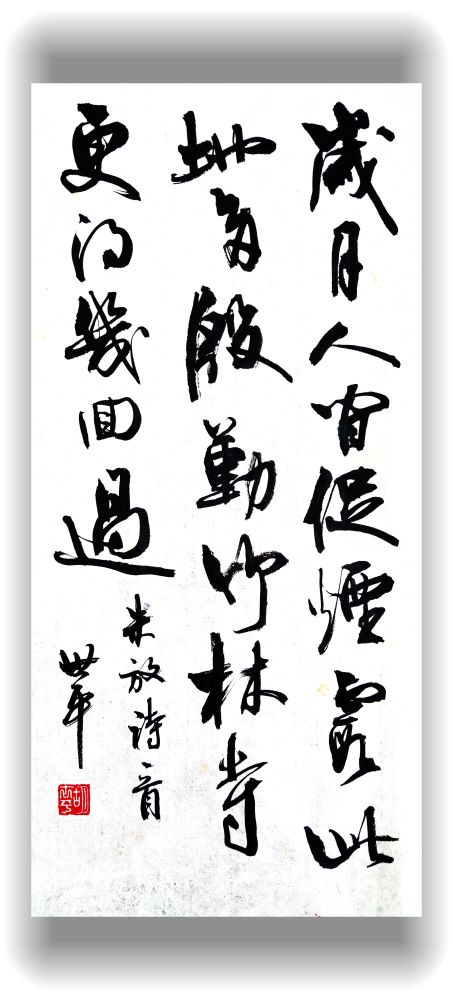 歲月人間促煙霞此
地多殷勤竹林寺
更得幾回過
朱放诗一首
世